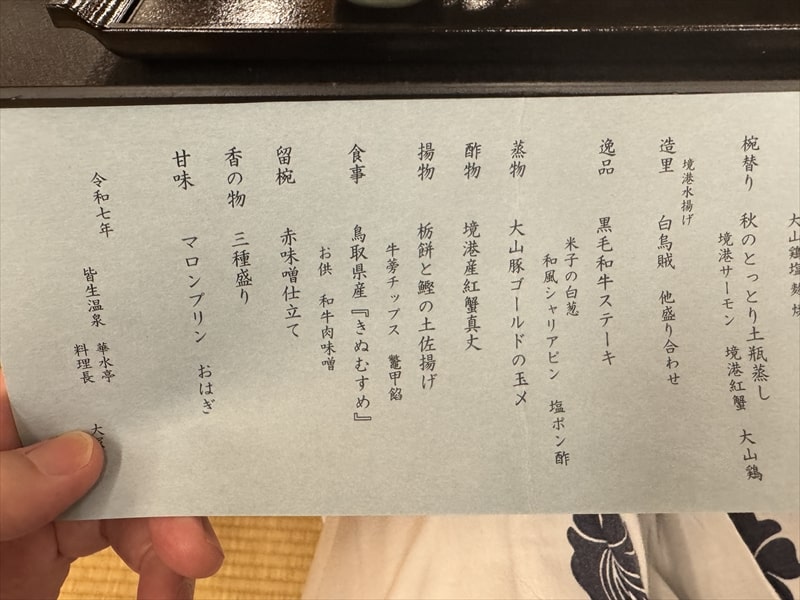 大山鶏塩麹焼
椀替り　秋のとっとり土瓶蒸し
境港サーモン　境港紅蟹　大山鶏
境港水揚げ
造里　白烏賊　他盛り合わせ
逸品　黒毛和牛ステーキ
米子の白葱
和風シャリアピン　塩ポン酢
蒸物　大山豚ゴールドの玉〆
酢物　境港産紅蟹真丈
揚物　栃餅と鰹の土佐揚げ
牛蒡チップス　鼈甲餡
食事　鳥取県産『きぬむすめ』
お供　和牛肉味噌
留椀　赤味噌仕立て
香の物　三種盛り
甘味　マロンプリン　おはぎ
令和七年　皆生温泉　華水亭
料理長　大